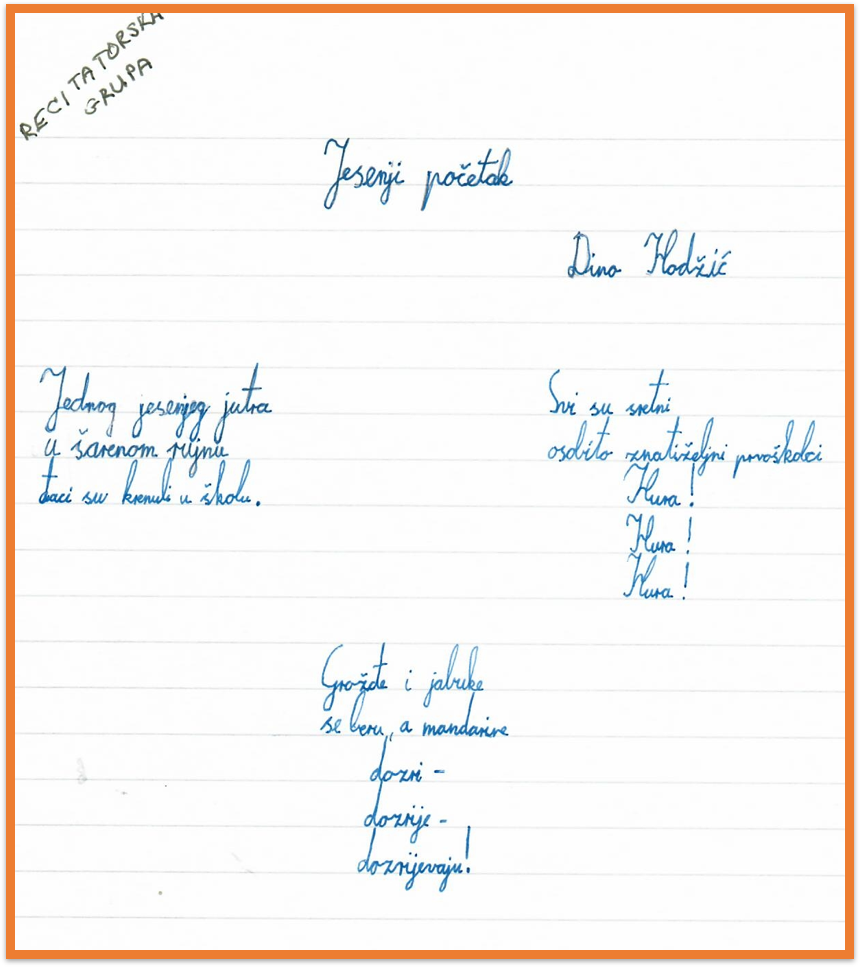 RECITATORSKA
GRUPA
Jesenji početak
Dino Hodžić
Jednog jesenjeg jutra
u šarenom rujnu
đaci su krenuli u školu.
Svi su sretni
osobito znatiželjni prvoškolci
Hura!
Hura!
Hura!
Grožđe i jabuke
se beru, a mandarine
dozri -
dozrije -
dozrijevaju!